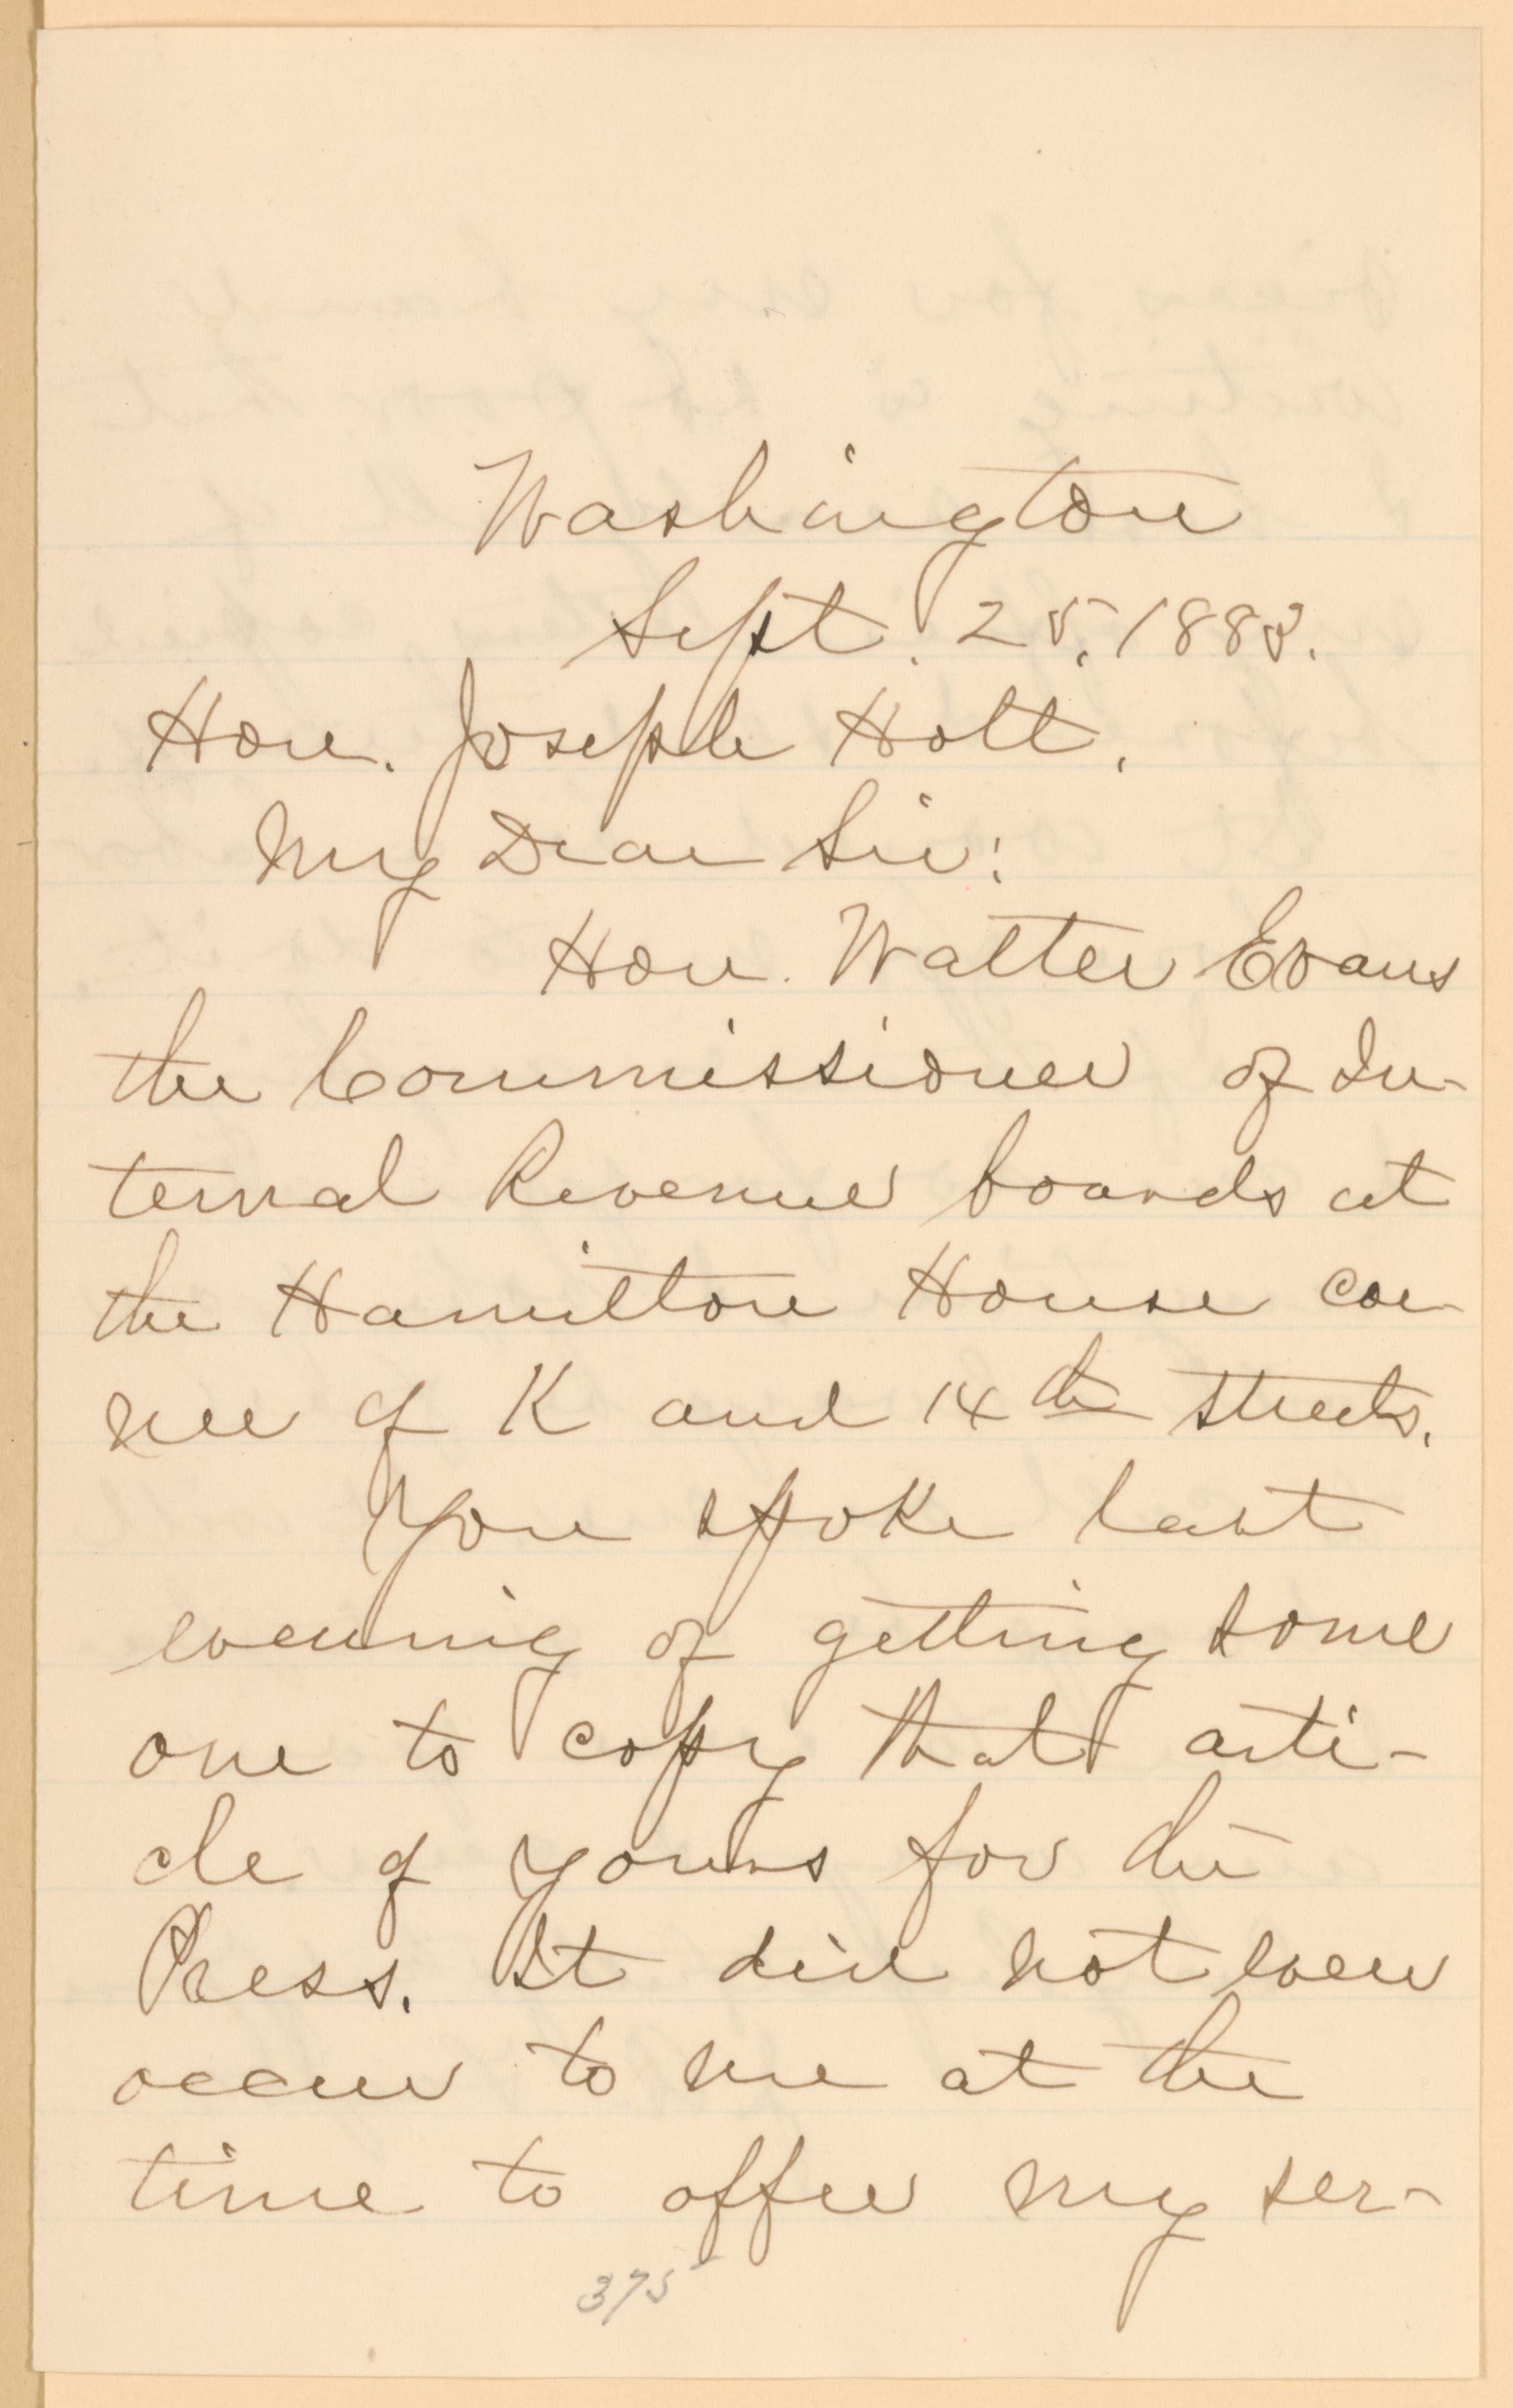 Washington
Sept. 25, 1883.
Hon. Joseph Holt,
My Dear Sir:
Hon. Walter Evans
the Commissioner of In-
ternal Revenue boards at
the Hamilton House cor-
ner of K and 14th streets.
You spoke last
evening of getting some
one to copy that arti-
cle of yours for the
Press. It did not even
occur to me at the
time to offer my ser-
375